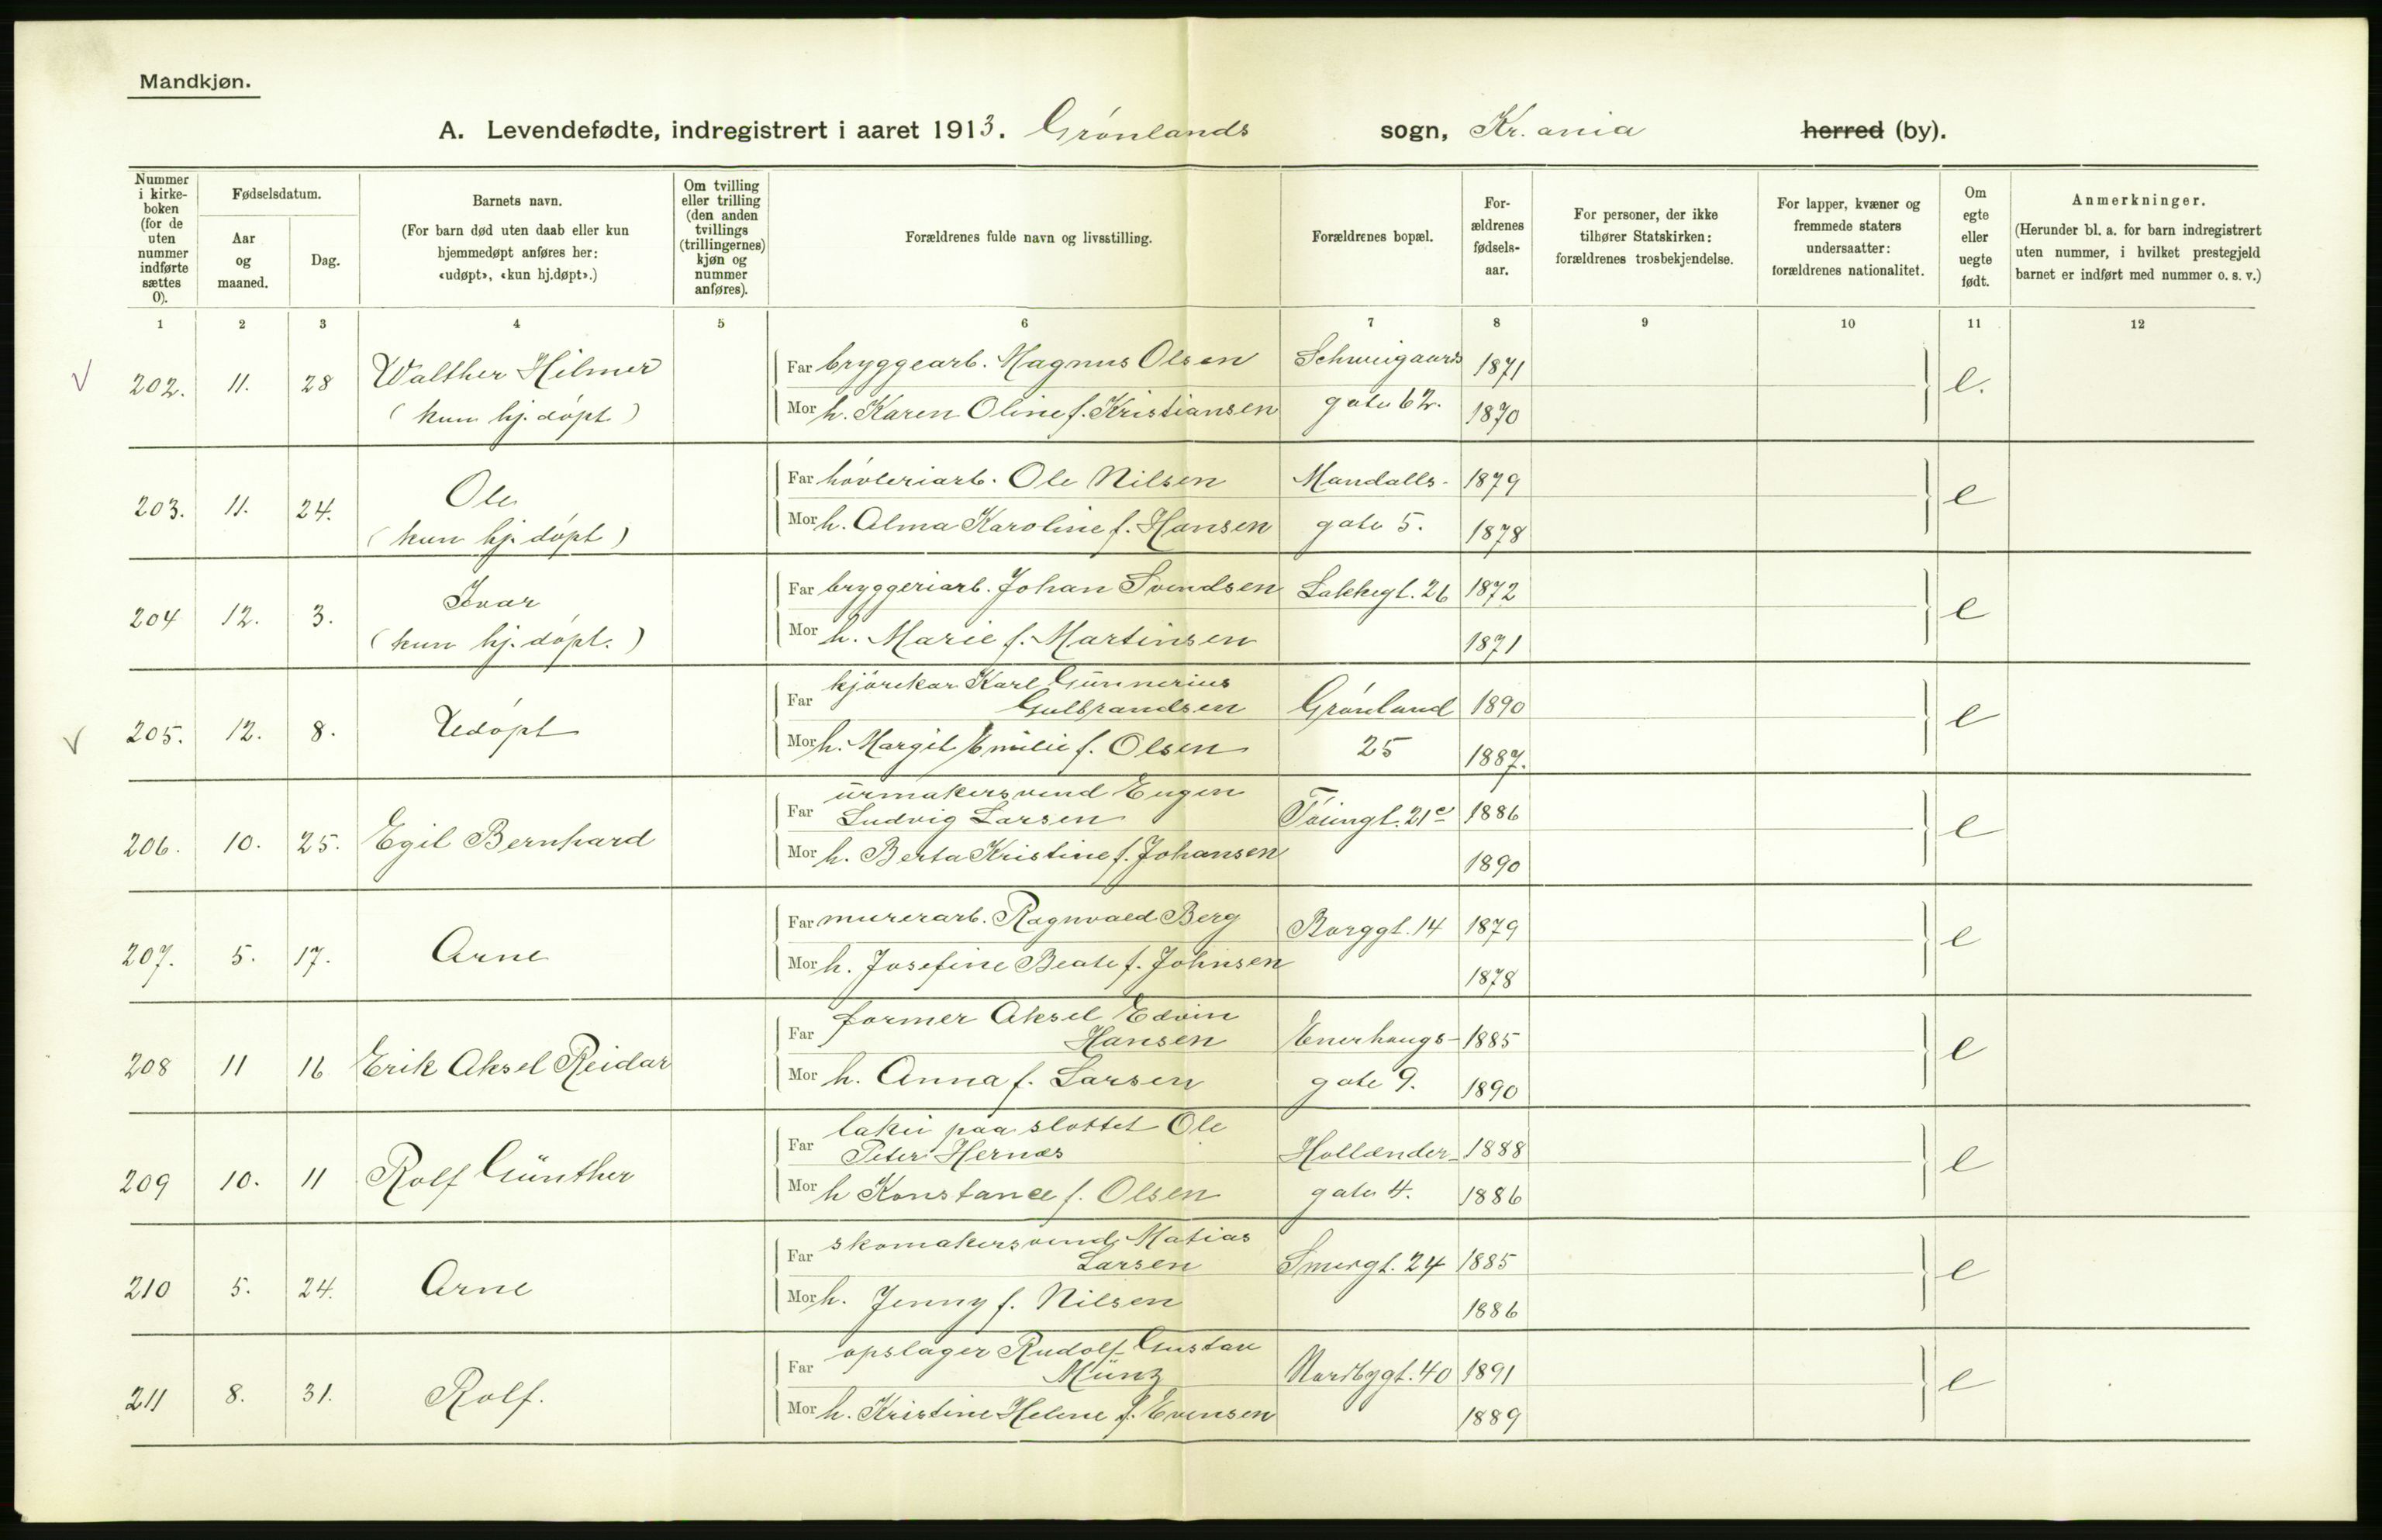 Mandkjøn.
A. Levendefødte, indregistrert i aaret 1913. Grønlands sogn, Kr.ania herred (by).
Nummer i kirkeboken (for de uten nummer indførte sættes 0).
Fødselsdatum.
Aar og maaned.
Dag.
Barnets navn.
(For barn død uten daab eller kun hjemmedøpt anføres her: «udøpt», «kun hj.døpt».)
Om tvilling eller trilling (den anden tvillings (trillingernes) kjøn og nummer anføres).
Forældrenes fulde navn og livsstilling.
Forældrenes bopæl.
Forældrenes fødselsaar.
For personer, der ikke tilhører Statskirken: forældrenes trosbekjendelse.
For lapper, kvæner og fremmede staters undersaatter: forældrenes nationalitet.
Om egte eller uegte født.
Anmerkninger.
(Herunder bl. a. for barn indregistrert uten nummer, i hvilket prestegjeld barnet er indført med nummer o. s. v.)
1 2 3 4 5 6 7 8 9 10 11 12
V 202. 11. 28 Walther Hilmer Far bryggearb. Magnus Olsen Schweigaards 1871 e.
(kun hj. døpt) Mor h. Karen Oline f. Kristiansen gate 62. 1870
203. 11. 24. Ole Far høvleriarb. Ole Nilsen Mandalls- 1879 e
(kun hj. døpt) Mor h. Alma Karoline f. Hansen gate 5. 1878
204 12. 3. Ivar Far bryggeriarb. Johan Svendsen Lakkegt. 26 1872 e
(kun hj. døpt.) Mor h. Marie f. Martinsen 1871
V 205. 12. 8. Udøpt Far kjørekar Karl Gunnerius
Gulbrandsen Grønland 1890 e
Mor h. Margit Emilie f. Olsen 25 1887.
206. 10. 25. Egil Bernhard Far urmakersvend Eugen
Ludvig Larsen Tøiengt. 21c 1886 e
Mor h. Berta Kristine f. Johansen 1890
207. 5. 17. Arne Far murerarb. Ragnvald Berg Borggt. 14 1879 e
Mor h. Josefine Beate f. Johnsen 1878
208 11 16 Erik Aksel Reidar Far former Aksel Edvin
Hansen Enerhaugs- 1885 e
Mor h. Anna f. Larsen gate 9. 1890
209 10. 11 Rolf Günther Far lakei paa slottet Ole
Peter Hernæs Hollænder- 1888 e
Mor h Konstance f. Olsen gate 4. 1886
210 5. 24. Arne Far skomakersvend Matias
Larsen Smergt. 24 1885 e
Mor h. Jenny f. Nilsen 1886
211 8. 31. Rolf. Far opslager Rudolf Gustav
Münz Nordbygt. 40 1891 e
Mor h. Kristine Helene f. Evensen 1889